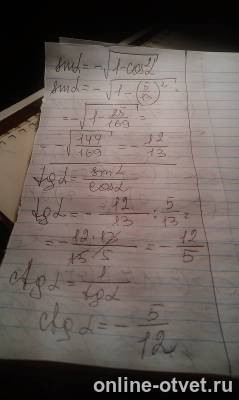 sinα = -√(1-cos²α)
sinα = -√(1-(5/13)²) =
= -√(1-25/169) =
= -√(144/169) = -12/13
tgα = sinα/cosα
tgα = -12/13 : 5/13 =
= -(12·13)/(13·5) = -12/5
ctgα = 1/tgα
ctgα = -5/12
online-otvet.ru